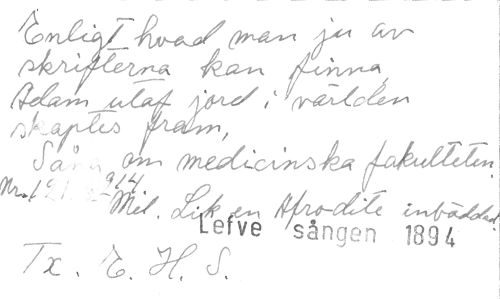 Enligt hvad man ju av
skrifterna kan finna,
Adam utaf jord i världen
skaptes fram,
Sång om medicinska fakulteten.
Nr.
Mel. Lik en Afrodite inbäddad.
Lefve sången 1894
Tx. E. H. S.